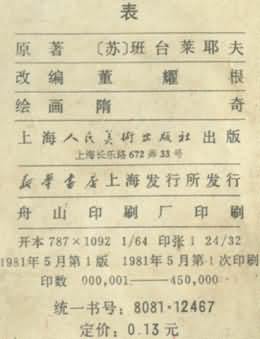 表
原著 〔苏〕班台莱耶夫
改编 董耀根
绘画 隋奇
上海人民美術出版社出版
上海长乐路672弄33号
新华書店上海发行所发行
舟山印刷厂印刷
开本 787×1092 1/64 印张 1 24/32
1981年5月第1版 1981年5月第1次印刷
印数 000,001——450,000
统一书号：8081·12467
定价：0.13元